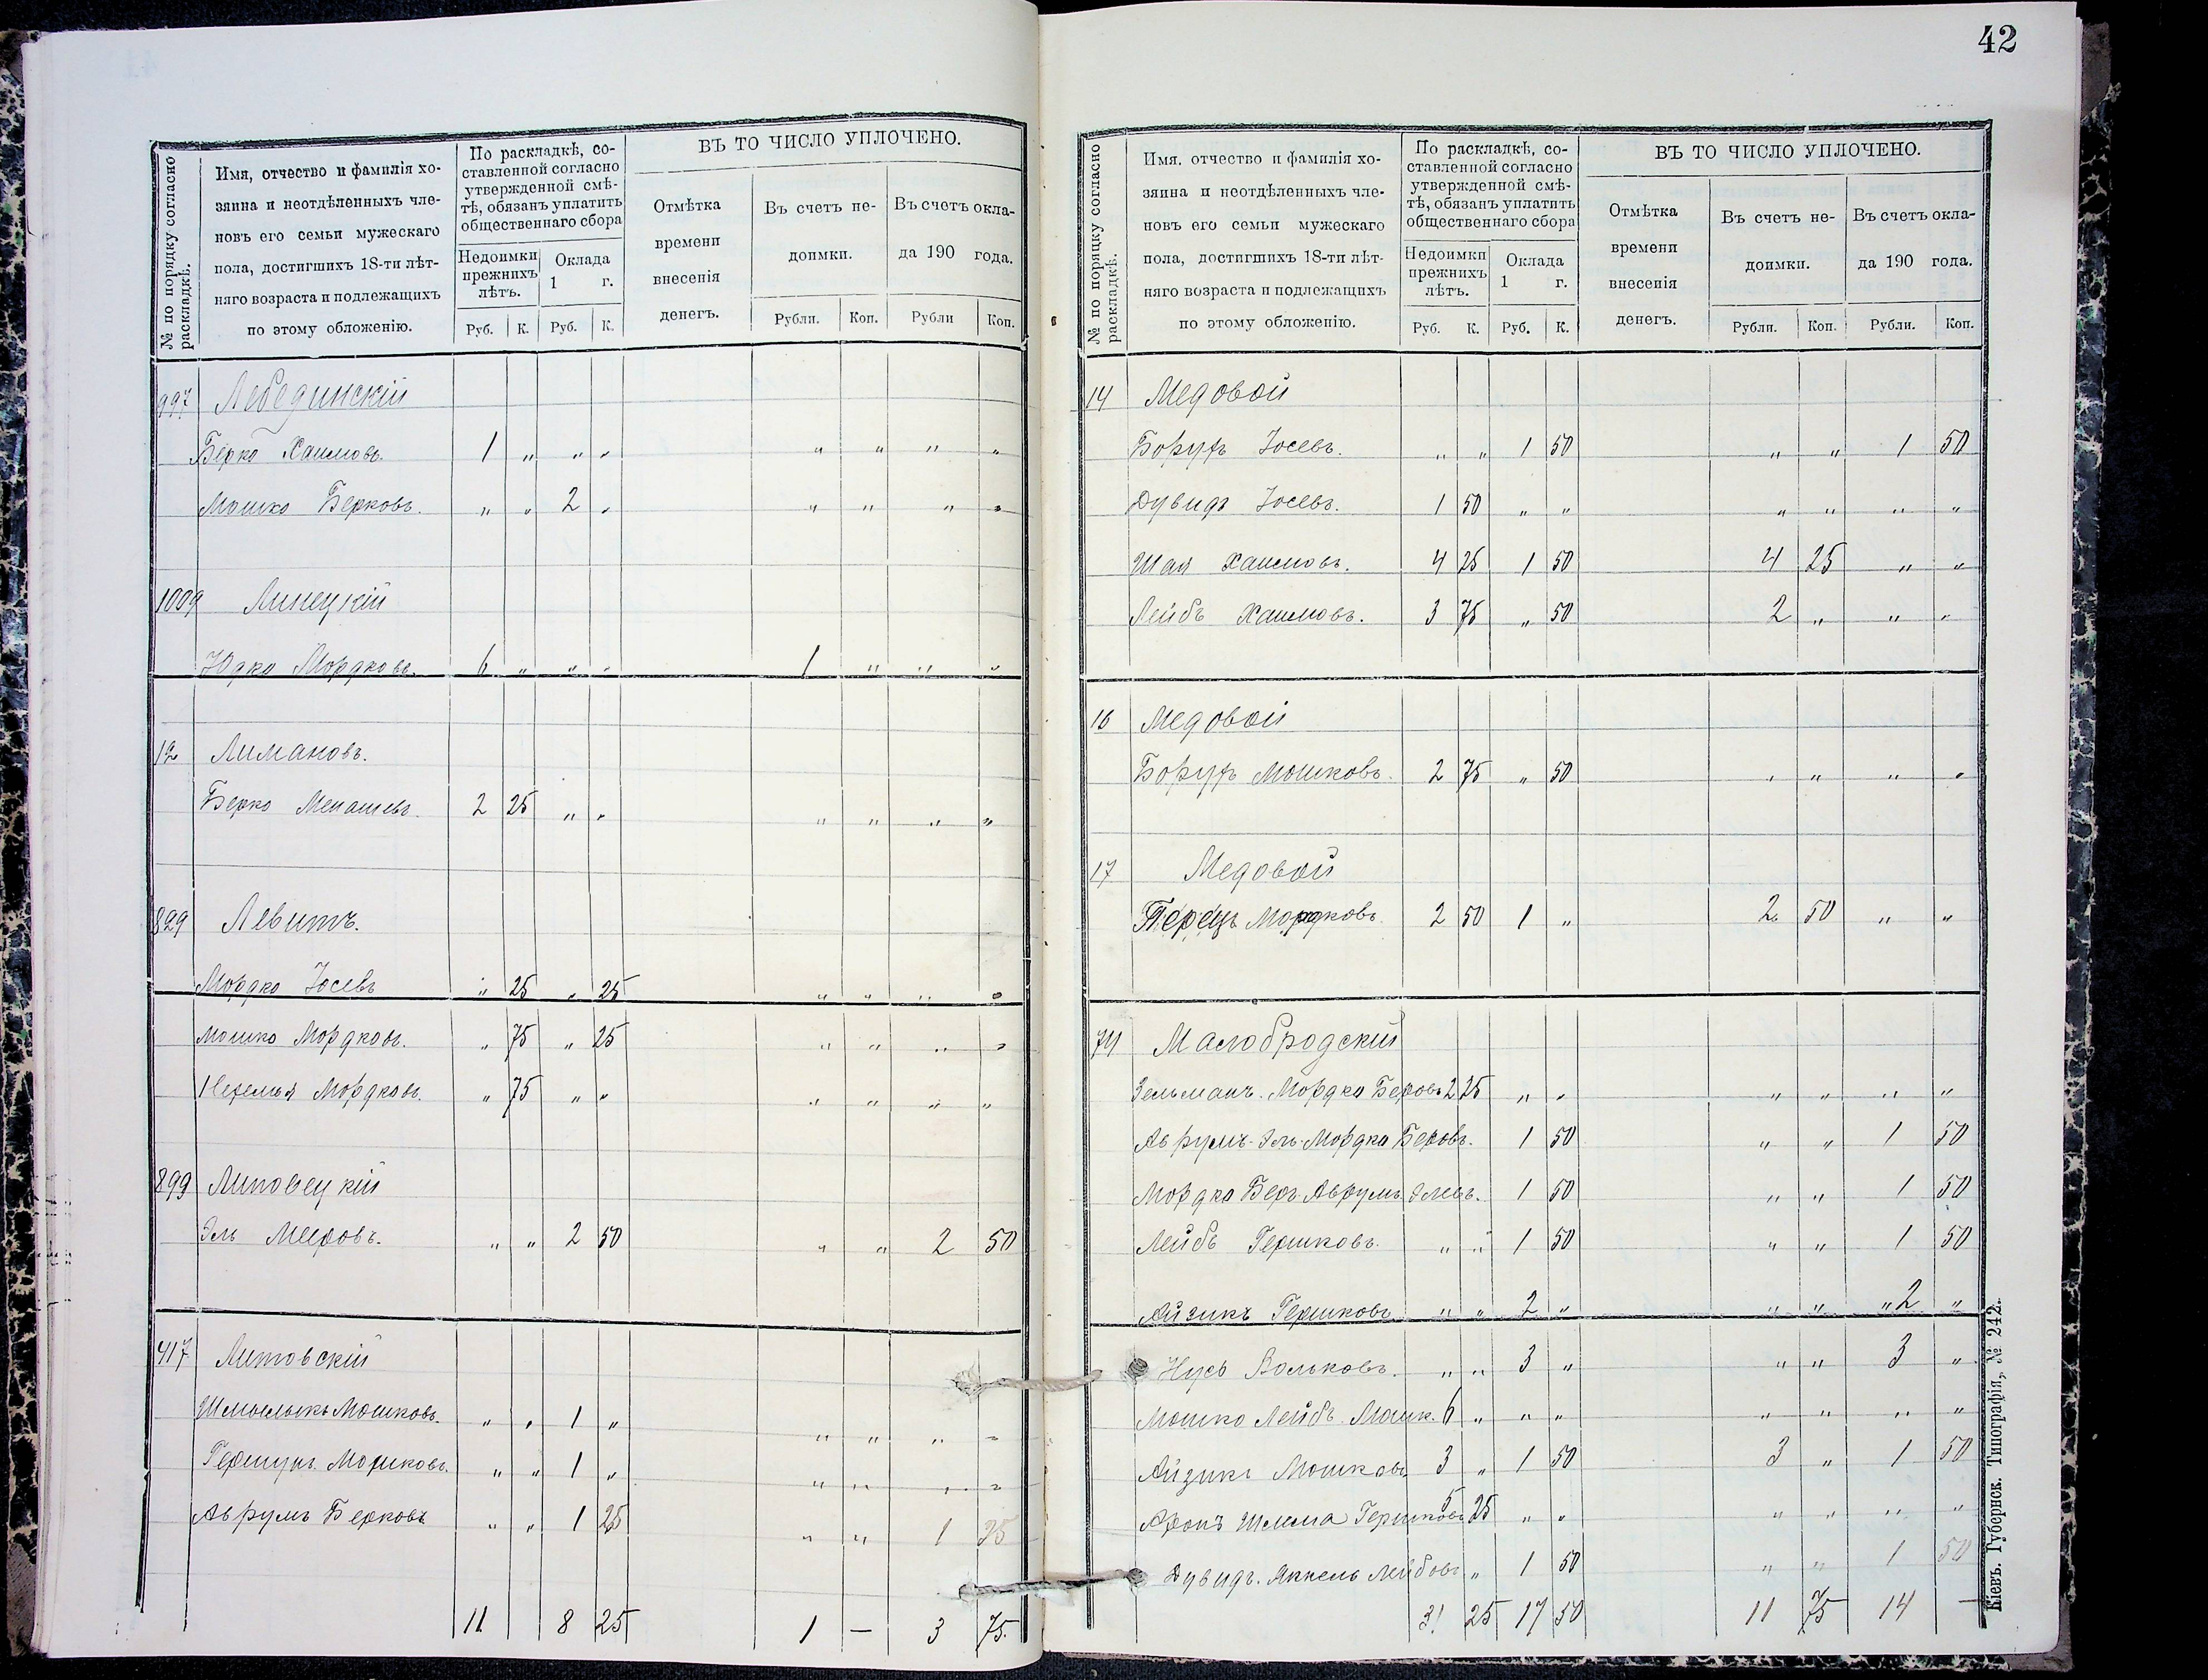 42
№ по порядку согласно раскладкѣ.
Имя, отчество и фамилія хо-
зяина и неотдѣленныхъ чле-
новъ его семьи мужескаго
пола, достигшихъ 18-ти лѣт-
няго возраста и подлежащихъ
по этому обложенію.
По раскладкѣ, со-
ставленной согласно
утвержденной смѣ-
тѣ, обязанъ уплатить
общественнаго сбора
Недоимки
прежнихъ
лѣтъ.
Оклада
1 г.
Руб. К. Руб. К.
ВЪ ТО ЧИСЛО УПЛОЧЕНО.
Отмѣтка
времени
внесенія
денегъ.
Въ счетъ не-
доимки.
Въ счетъ окла-
да 190 года.
Рубли. Коп. Рубли Коп.
997 Лебединскій
Берко Хаимовъ. 1 " " " " " " "
Мошко Берковъ. " " 2 " " " " "
1009 Линецкій
Юдко Мордковъ. 6 " " " 1 " " "
12 Лимановъ.
Берко Менашевъ. 2 25 " " " " " "
829 Левитъ.
Мордко Іосевъ " 25 " 25 " " " "
Мошко Мордковъ. " 75 " 25 " " " "
Нехемья Мордковъ. " 75 " " " " " "
899 Липовецкій
Эль Мееровъ. " " 2 50 " " 2 50
417 Литовскій
Шмюлыкъ Мошковъ. " " 1 " " " " "
Гершунъ Мошковъ. " " 1 " " " " "
Аврумъ Берковъ " " 1 25 " " 1 25
11 8 25 1 — 3 75.
№ по порядку согласно раскладкѣ.
Имя. отчество и фамилія хо-
зяина и неотдѣленныхъ чле-
новъ его семьи мужескаго
пола, достигшихъ 18-ти лѣт-
няго возраста и подлежащихъ
по этому обложенію.
По раскладкѣ, со-
ставленной согласно
утвержденной смѣ-
тѣ, обязанъ уплатить
общественнаго сбора
Недоимки
прежнихъ
лѣтъ.
Оклада
1 г.
Руб. К. Руб. К.
ВЪ ТО ЧИСЛО УПЛОЧЕНО.
Отмѣтка
времени
внесенія
денегъ.
Въ счетъ не-
доимки.
Въ счетъ окла-
да 190 года.
Рубли. Коп. Рубли. Коп.
14 Медовой
Борухъ Іосевъ. " " 1 50 " " 1 50
Дувидъ Іосевъ. 1 50 " " " " " "
Шая Хаимовъ. 4 25 1 50 4 25 " "
Лейбъ Хаимовъ. 3 75 " 50 2 " " "
16 Медовой
Борухъ Мошковъ. 2 75 " 50 " " " "
17 Медовой
Перецъ Мордковъ. 2 50 1 " 2 50 " "
74 Малобродскій
Зельманъ. Мордко Беровъ 2 25 " " " " " "
Аврумъ-Эль-Мордко Беровъ. 1 50 " " 1 50
Мордко Беръ. Аврумъ Элевъ. 1 50 " " 1 50
Лейбъ Гершковъ. " " 1 50 " " 1 50
Айзикъ Гершковъ " " 2 " " " " 2 "
Нусь Вольковъ. " " 3 " " " 3 "
Мошко Лейбъ. Мошк. 6 " " " " " " "
Айзикъ Мошковъ 3 " 1 50 3 " 1 50
Аронъ Шлема Гершковъ 5 25 " " " " " "
Дувидъ. Янкель Лейбовъ " 1 50 " " 1 50
31 25 17 50 11 75 14 —
Кіевъ. Губернск. Типографія, № 242.